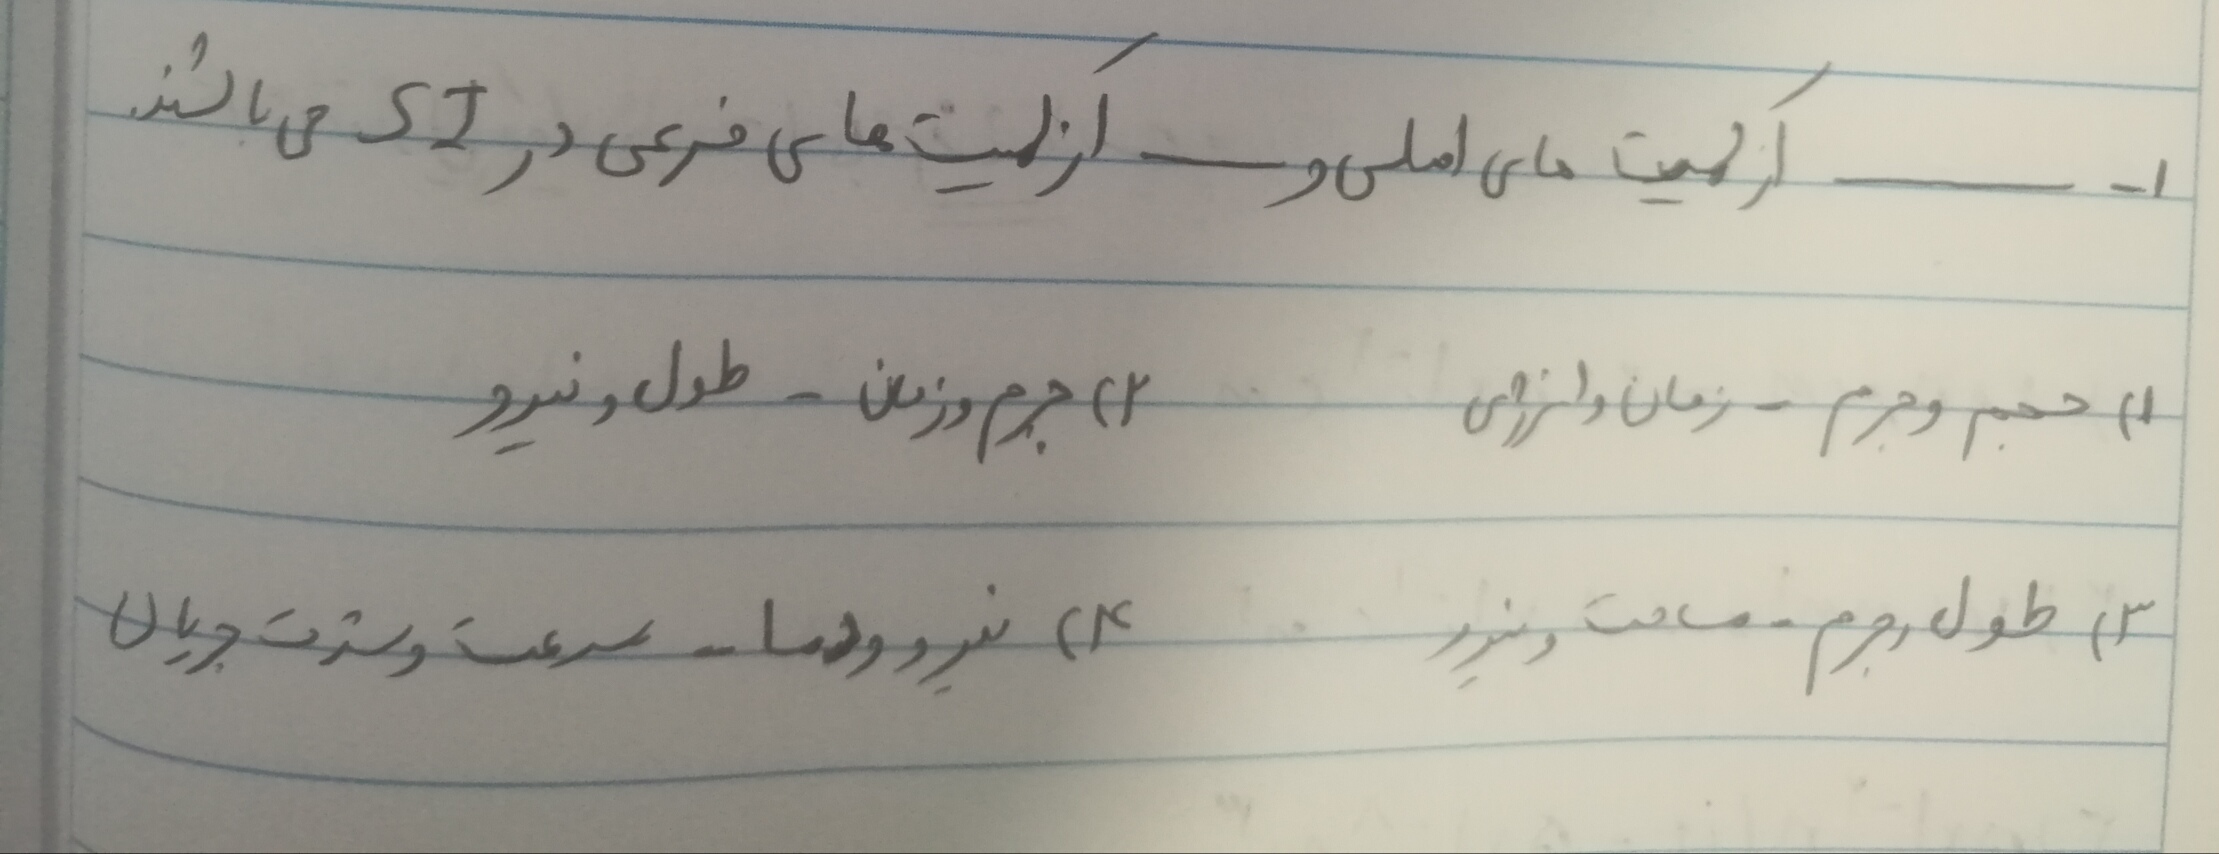 ۱- ــــــــ از کمیت های اصلی و ــــــــ از کمیت های فرعی در SI می باشند
۱) حجم و جرم - زمان و انرژی
۲) جرم و زمان - طول و نیرو
۳) طول و جرم - مساحت و نیرو
۴) نیرو و دما - سرعت و شدت جریان